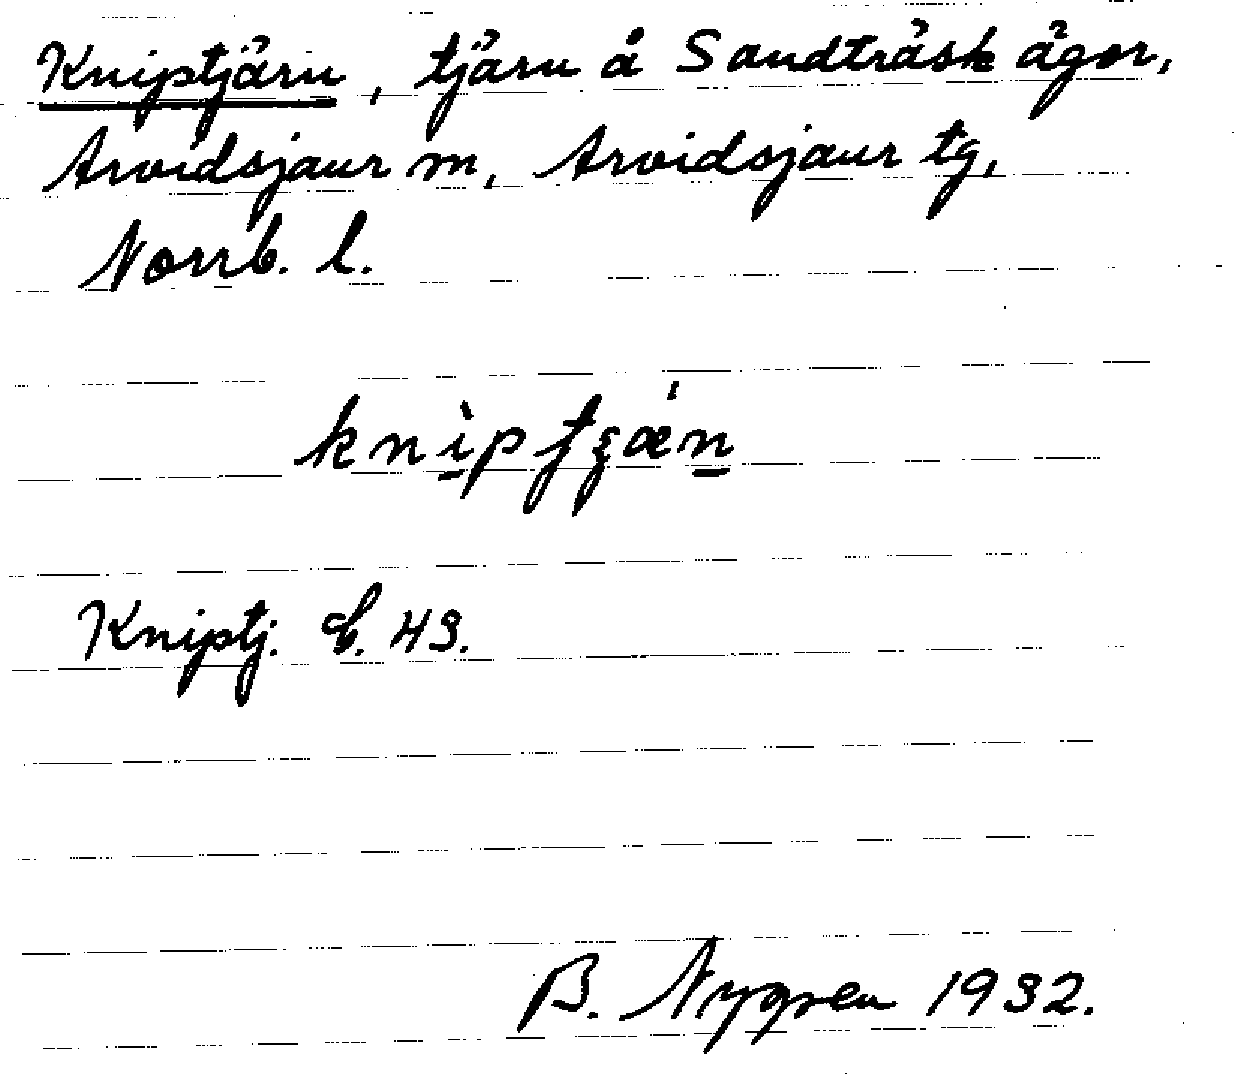 Kniptjärn, tjärn å Sandträsk ägor,
Arvidsjaur m, Arvidsjaur tg,
Norrb. l.
Kniptj. E. 43.
B. Nygren 1932.